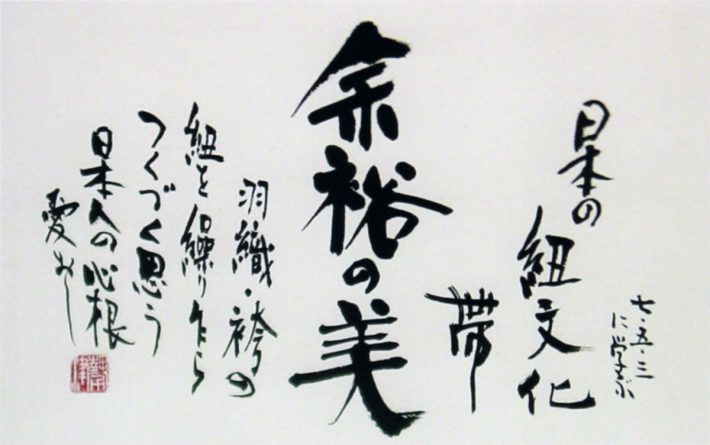 日本の
紐文化
帯
七・五・三
に学ぶ
余裕の美
羽織・袴の
紐を繰り乍ら
つくづく思う
日本人の心根
愛おし